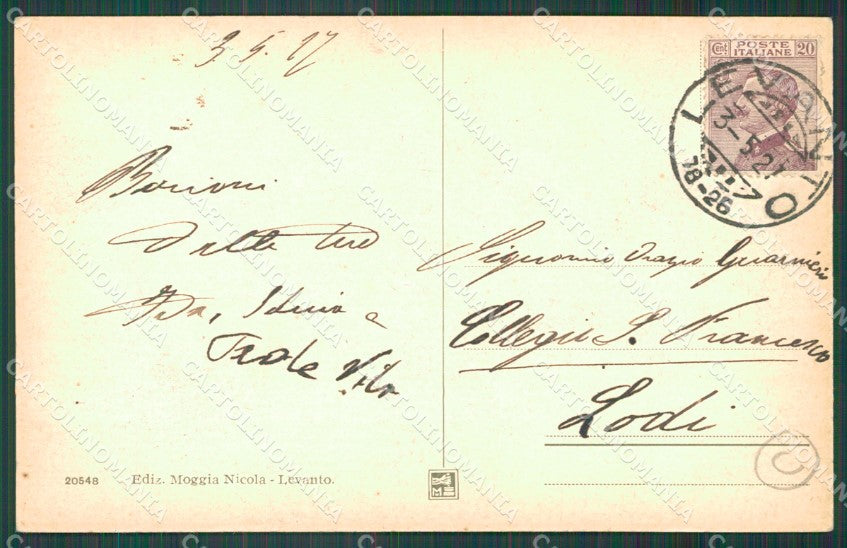 3 5 27
Cent POSTE ITALIANE 20
LEVANTO
3-5.27
18-26
Bacioni
dalle tue
Ida,
Signorino Orazio Guarnieri
Collegio S. Francesco
Lodi
20548 Ediz. Moggia Nicola - Levanto.
CARTOLINOMANIA